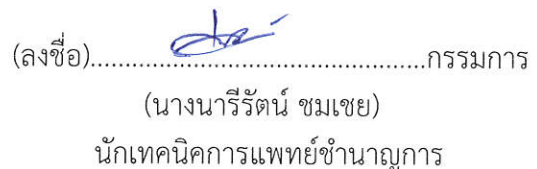 (ลงชื่อ)................................................กรรมการ
(นางนารีรัตน์ ชมเชย)
นักเทคนิคการแพทย์ชำนาญการ